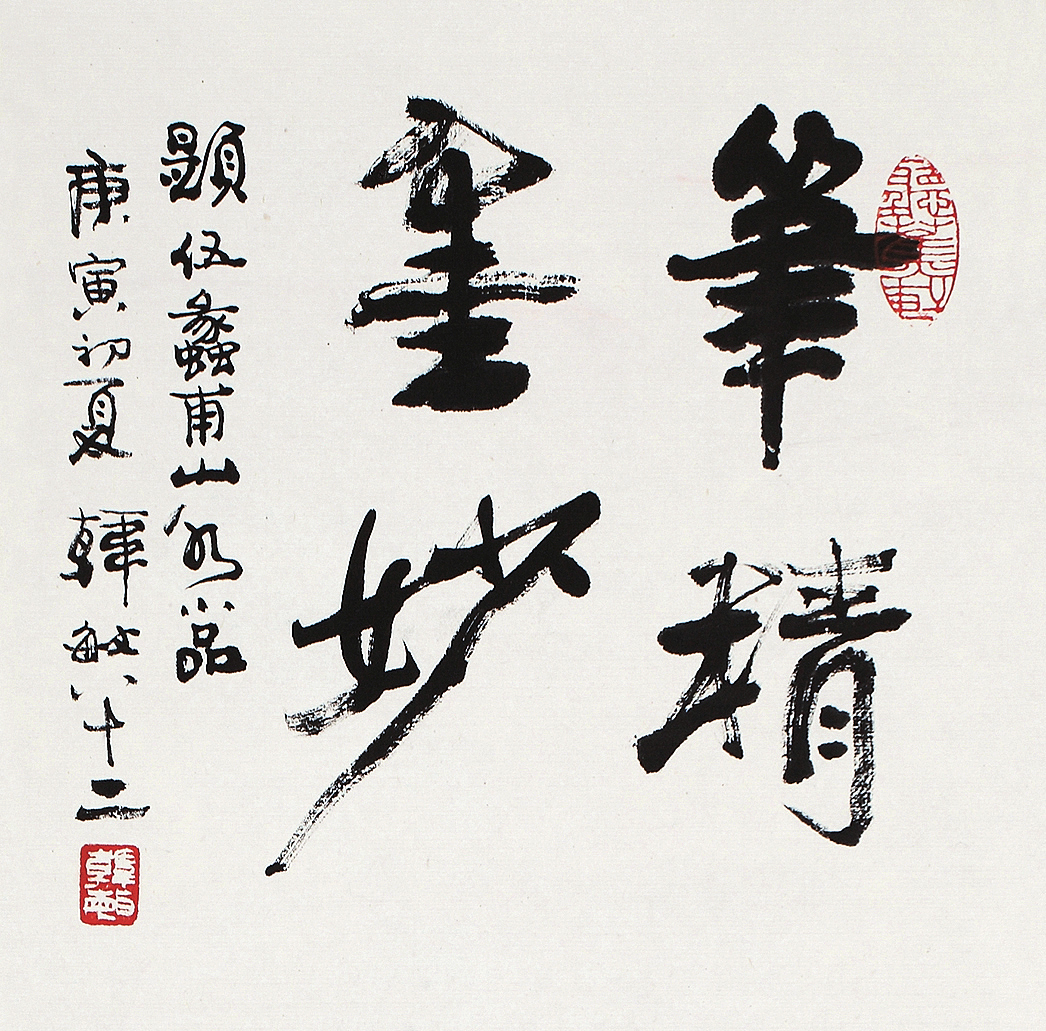 筆精
墨妙
題伍蠡甫山水小品
庚寅初夏 韓敏八十二